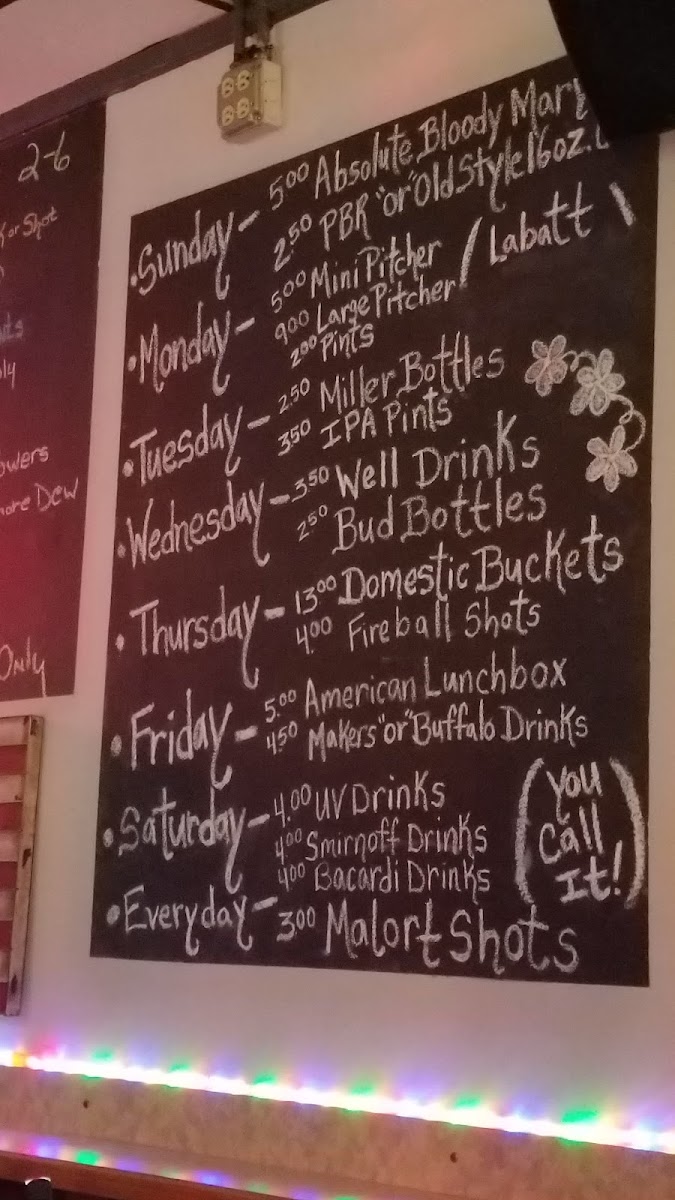 2-6
or Shot
owers
more Dew
Only
• Sunday - 5.00 Absolute Bloody Mary
2.50 PBR "or" Old Style 16oz.
• Monday - 5.00 Mini Pitcher
9.00 Large Pitcher
2.00 Pints
( Labatt )
• Tuesday - 2.50 Miller Bottles
3.50 IPA Pints
• Wednesday - 3.50 Well Drinks
2.50 Bud Bottles
• Thursday - 13.00 Domestic Buckets
4.00 Fireball Shots
• Friday - 5.00 American Lunchbox
4.50 Makers "or" Buffalo Drinks
• Saturday - 4.00 UV Drinks
4.00 Smirnoff Drinks
4.00 Bacardi Drinks
(You
Call
It!)
• Everyday - 3.00 Malort Shots